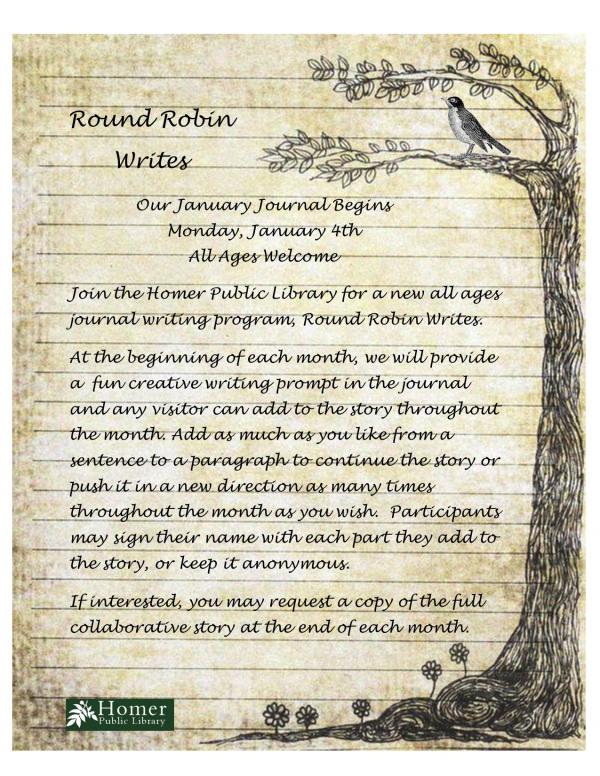 Round Robin
Writes
Our January Journal Begins
Monday, January 4th
All Ages Welcome
Join the Homer Public Library for a new all ages
journal writing program, Round Robin Writes.
At the beginning of each month, we will provide
a fun creative writing prompt in the journal
and any visitor can add to the story throughout
the month. Add as much as you like from a
sentence to a paragraph to continue the story or
push it in a new direction as many times
throughout the month as you wish. Participants
may sign their name with each part they add to
the story, or keep it anonymous.
If interested, you may request a copy of the full
collaborative story at the end of each month.
Homer
Public Library